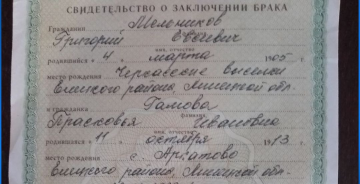 СВИДЕТЕЛЬСТВО О ЗАКЛЮЧЕНИИ БРАКА
Гражданин Мельников
фамилия
Григорий
имя, отчество
родившийся « 4 » марта 1905
место рождения Черкасские выселки
Елецкого района, Липецкой обл.
и гражданка Гамова
фамилия
Прасковья Ивановна
имя, отчество
родившаяся « 11 » октября 1913
место рождения с. Архатово
Елецкого района, Липецкой обл.